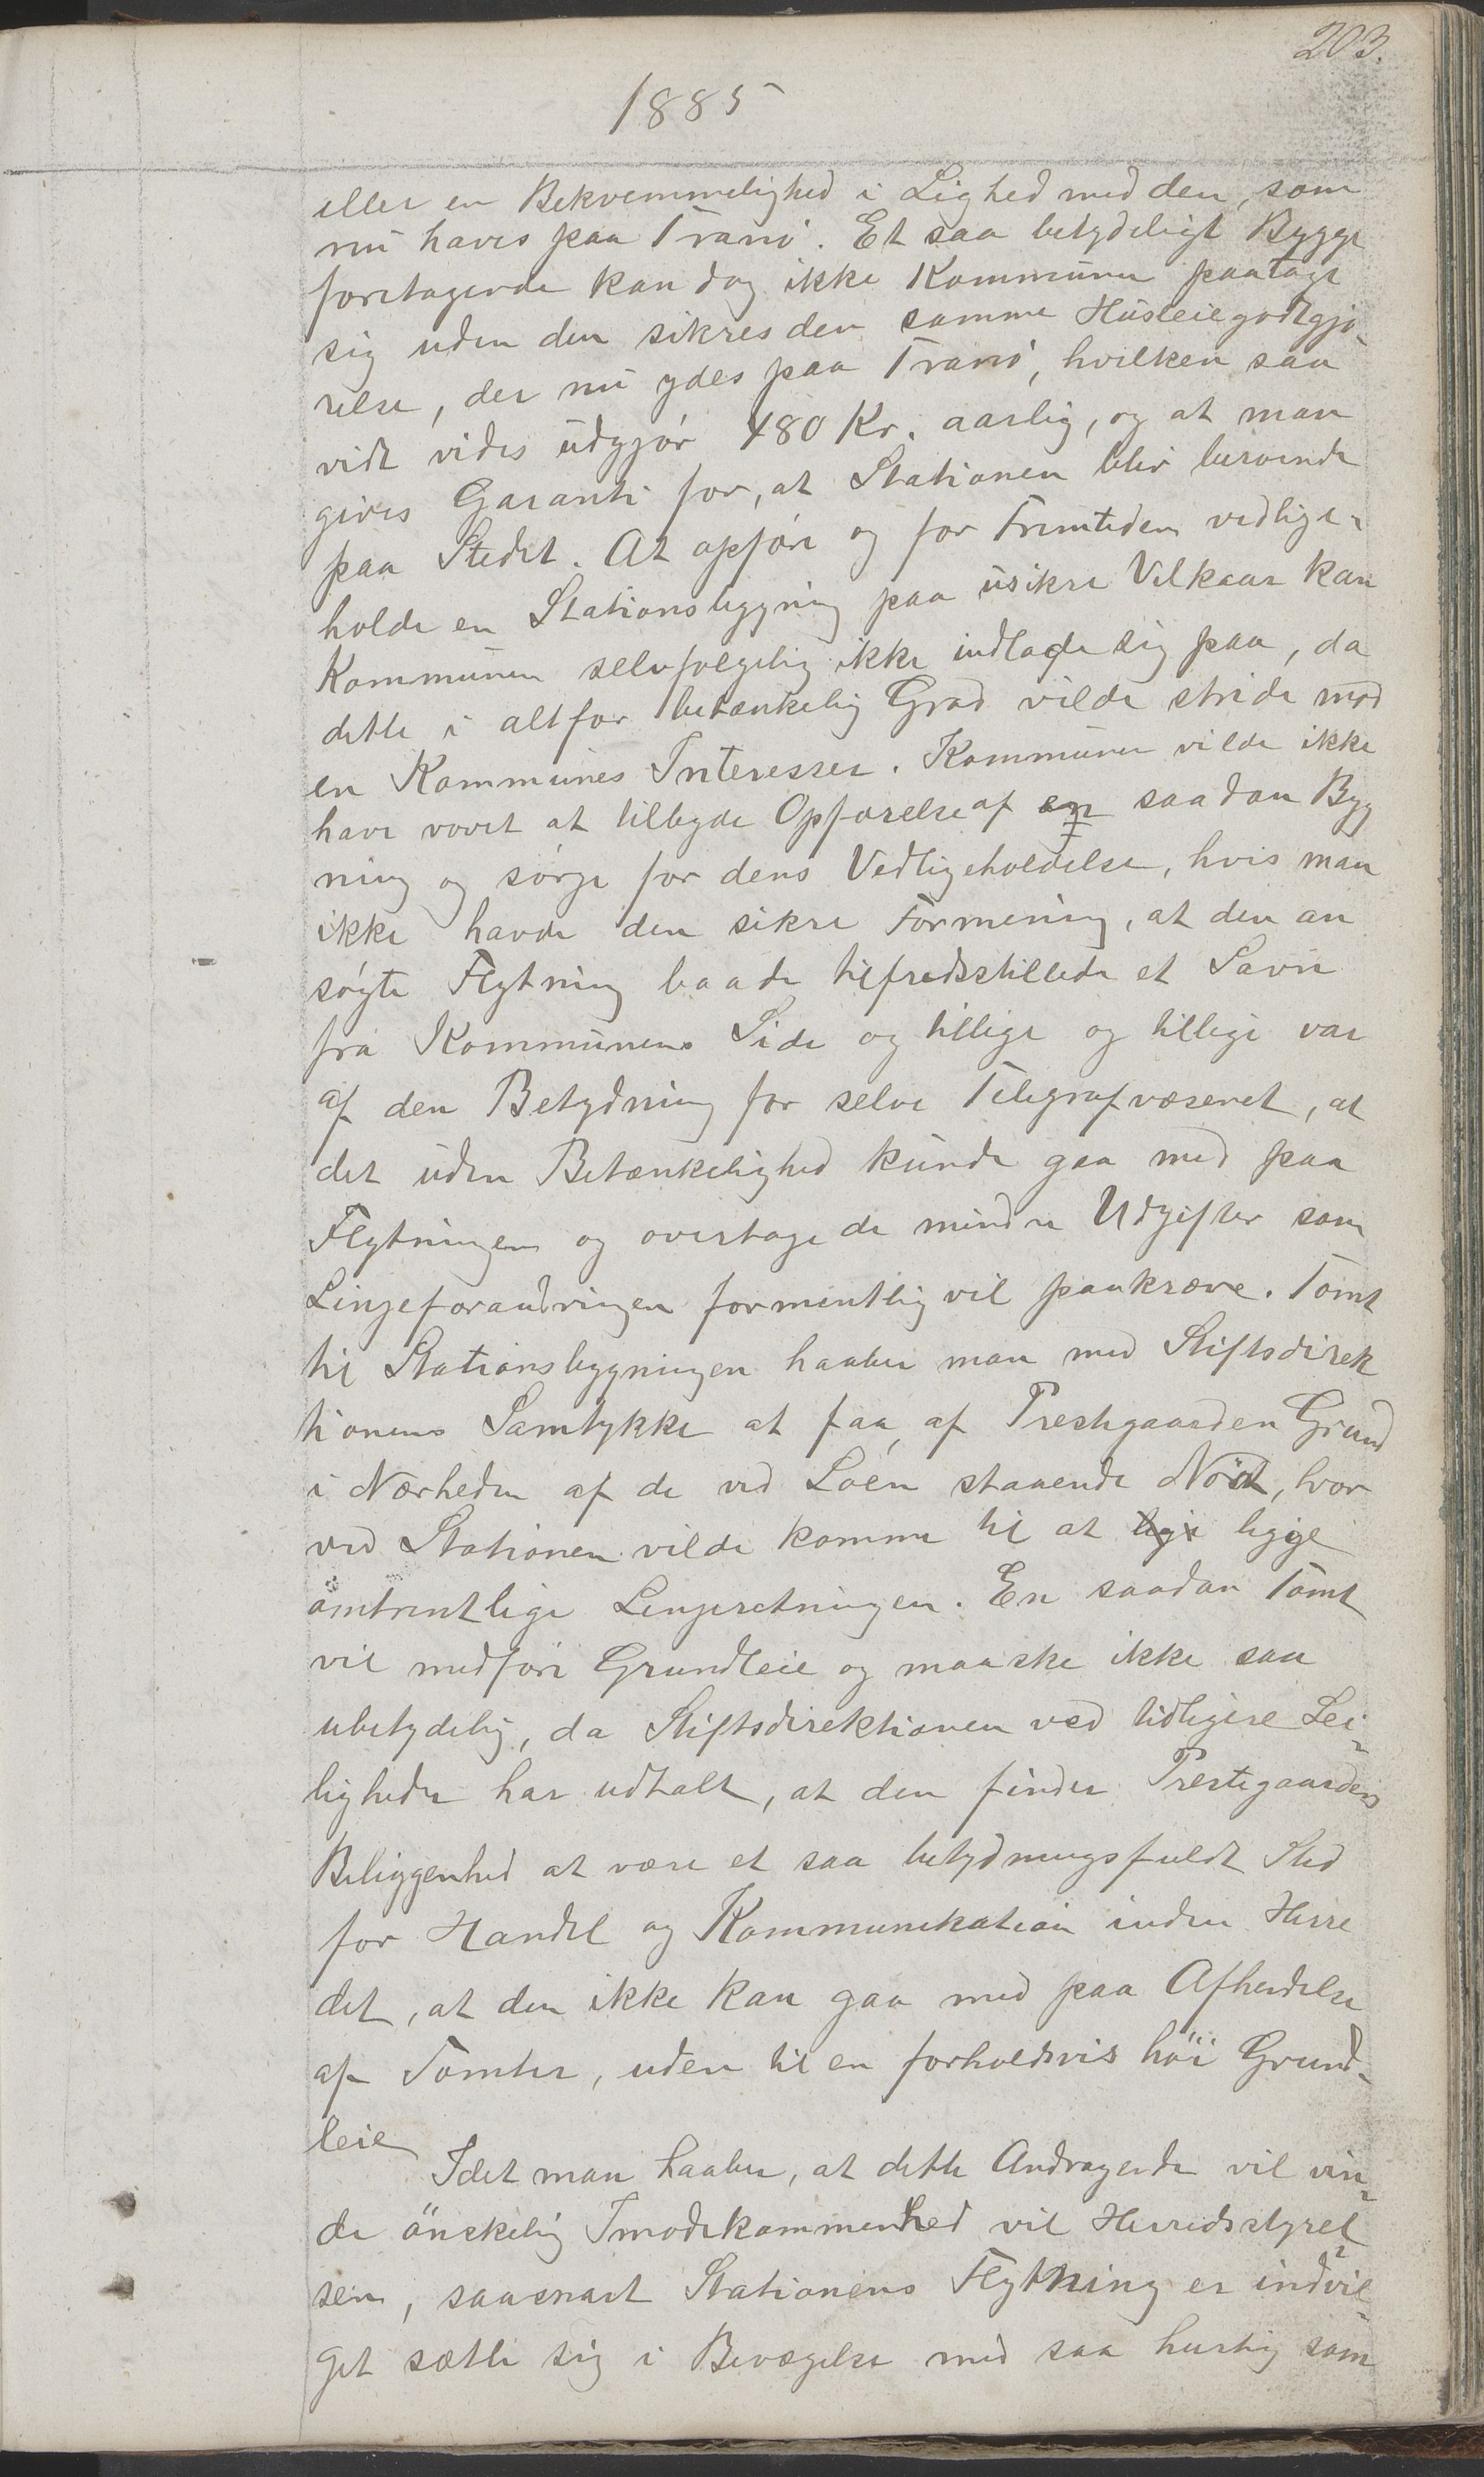 203.
1885
eller en Bekvemmelighed i Lighed med den, som
nu haves paa Tranö. Et saa betydeligt Bygge
foretagende kan dog ikke Kommunen paatage
sig uden den sikres den samme Husleiegodtgjö-
relse, der nu ydes paa Tranö, hvilken saa
vidt vides udgjör 480 Kr. aarlig, og at man
gives Garanti for, at Stationen blir beroende
paa Stedet. At opföre og for Fremtiden vedlige-
holde en Stationsbygning paa usikre Vilkaar kan
Kommunen selvfølgelig ikke indlade sig paa, da
dette i altfor betænkelig Grad vilde stride mod
en Kommunes Interesser. Kommunen vilde ikke
have vovet at tilbyde Opførelse af en saadan Byg
ning og sörge for dens Vedligeholdelse, hvis man
ikke havde den sikre Formening, at den an
søgte Flytning baade tilfredsstillede et Savn
fra Kommunens Side og tillige og tillige var
af den Betydning for selve Telegrafvæsenet, at
det uden Betænkelighed kunde gaa med paa
Flytningen og overtage de mindre Udgifter som
Linjeforandringen formentlig vil paakræve. Tomt
til Stationsbygningen haaber man med Stiftsdirek
tionens Samtykke at faa, af Prestgaarden Grund
i Nærheden af de ved Loen staaende Nöst, hvor
ved Stationen vilde komme til at lige ligge
omtrentlige Linjeretningen. En saadan Tomt
vil medföre Grundleie og maaske ikke saa
ubetydelig, da Stiftsdirektionen ved tidligere Lei-
ligheder har udtalt, at den finder Prestegaardens
Beliggenhed at være et saa betydningsfuldt Sted
for Handel og Kommunikation inden Herre
det, at den ikke kan gaa med paa Afhendelse
af Tomter, uden til en forholdsvis höi Grund-
leie
Idet man haaber, at dette Andragende vil vin-
de önskelig Imødekommenhed vil Herredsstyrel-
sen, saasnart Stationens Flytning er indvil-
get sætte sig i Bevægelse med saa hurtig som